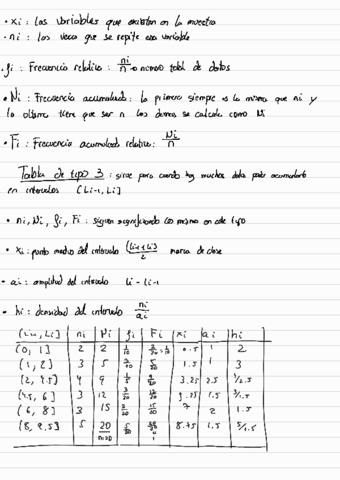 • xi : las variables que existen en la muestra
• ni : las veces que se repite esa variable
• fi : Frecuencia relativa : ni/n → número total de datos
• Ni : Frecuencia acumulada : la primera siempre es la misma que ni y
la última tiene que ser n las demás se calcula como Ni
• Fi : Frecuencia acumulada relativa : Ni/n
Tabla de tipo 3 : sirve para cuando hay muchos datos poder acumularlo
en intervalos (Li-1, Li]
• ni, Ni, fi, Fi : siguen significando lo mismo en este tipo
• xi : punto medio del intervalo (Li-1+Li)/2 marca de clase
• ai : amplitud del intervalo Li - Li-1
• hi : densidad del intervalo ni/ai
(Li-1, Li] ni Ni fi Fi xi ai hi
(0, 1] 2 2 2/20 2/20 0.5 1 2
(1, 2] 3 5 3/20 5/20 1.5 1 3
(2, 4.5] 4 9 9/20 3.25 2.5 4/2.5
(4.5, 6] 3 12 3/20 12/20 1.5 3/1.5
(6, 8] 3 15 3/20 15/20 7 2 1.5
(8, 9.5] 5 20 5/20 20/20 8.75 1.5 5/1.5
n=20 1